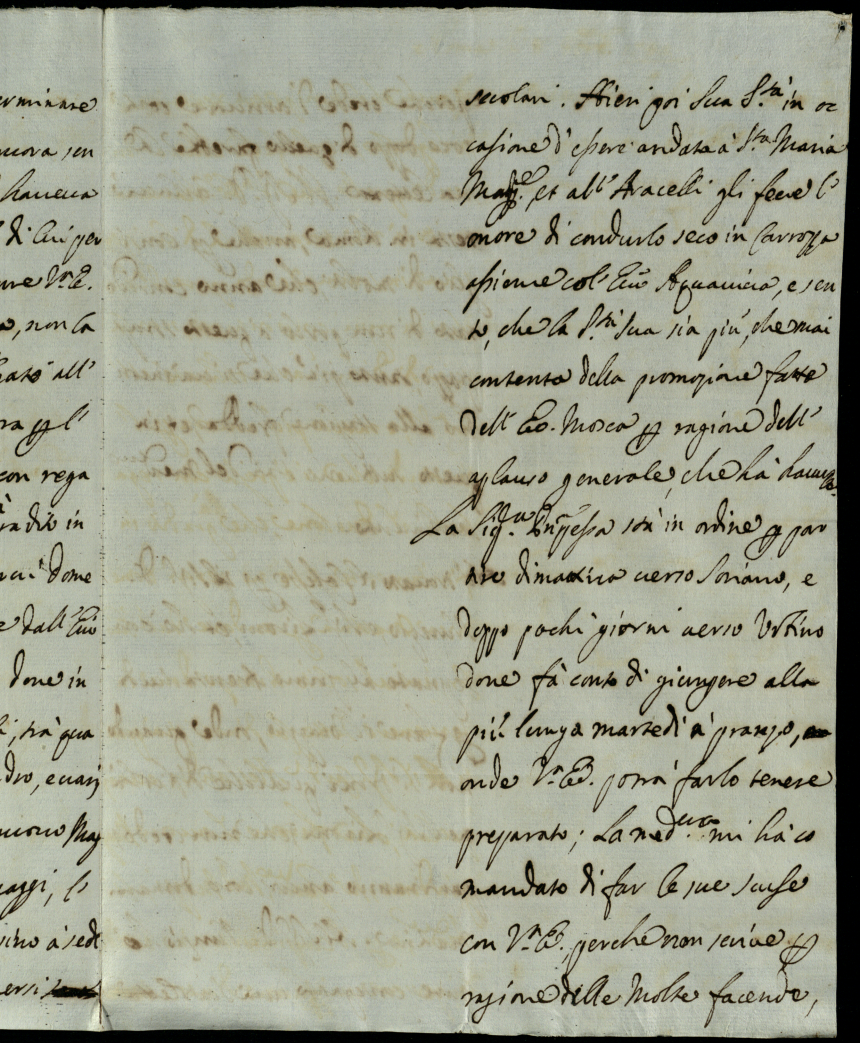 erminare
ncora sen
haueua
di lui per
V.E.
non la
hato all'
ra p l'
con rega
in
dome
e dall' Em̃o
doue in
trà qua
dro, e uarij
ncora Mag
l'
à sede
ersi
secolari. Hieri poi Sua S.tà in oc
casione d'essere andata à S.ta Maria
Magg.re, et all' Aracelli gli fece l'
onore di condurlo seco in Carrozza
assieme col' Em̃o Aquauiua, e sen
to, che la S.tà Sua sia più, che mai
contenta della promozione fatta
dell' Em̃o. Mosca p ragione dell'
aplauso generale, che hà hauuto.
La Sig.ra Prñpessa stà in ordine p par
tire dimatina uerso Soriano, e
doppo pochi giorni uerso Urbino
doue fà conto di giungere alla
più lunga martedì à pranzo,
onde V.ra E. potrà farlo tenere
preparato; La med.ma mi hà co
mandato di far le sue scuse
con V.ra E., perche non scriue p
ragione delle molte facende,